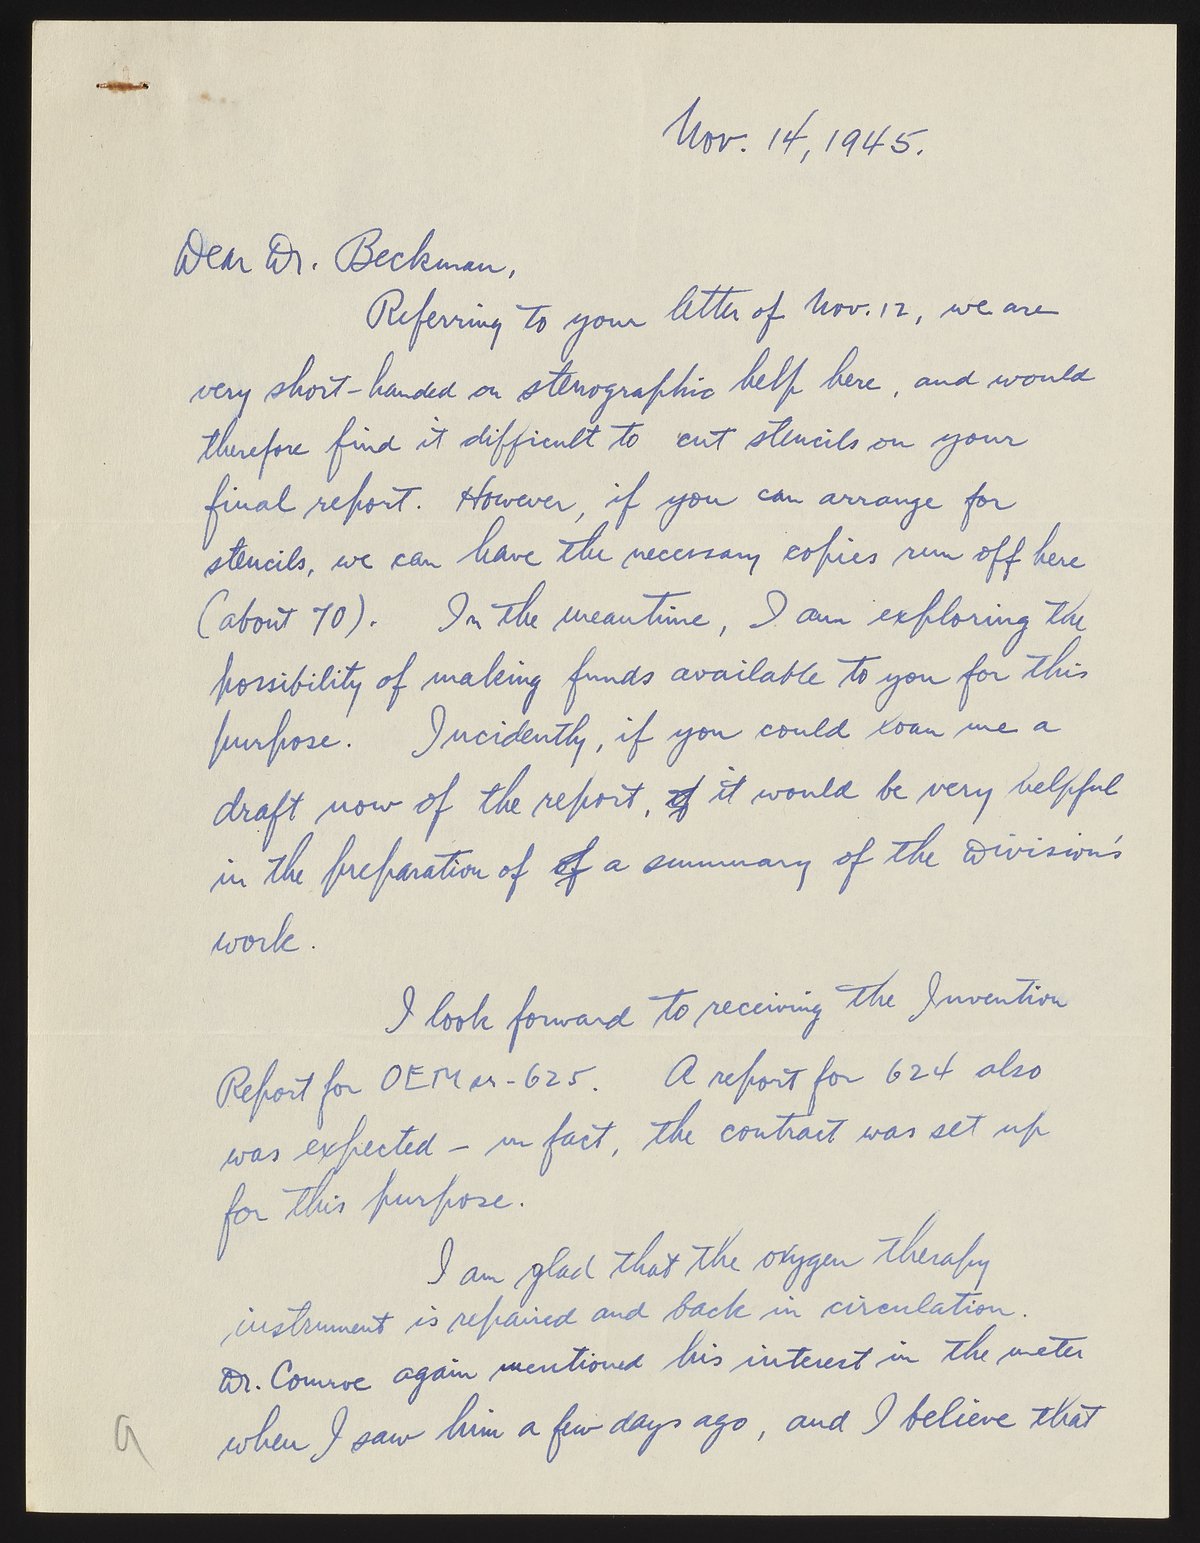 Nov. 14, 1945.
Dear Dr. Beckman,
Referring to your letter of Nov. 12, we are
very short-handed on stenographic help here, and would
therefore find it difficult to cut stencils on your
final report. However, if you can arrange for
stencils, we can have the necessary copies run off here
(about 70). In the meantime, I am exploring the
possibility of making funds available to you for this
purpose. Incidently, if you could loan me a
draft now of the report, it would be very helpful
in the preparation of a summary of the Division's
work.
I look forward to receiving the Invention
Report for OEMsr-625. A report for 624 also
was expected – in fact, the contract was set up
for this purpose.
I am glad that the oxygen therapy
instrument is repaired and back in circulation.
Dr. Comroe again mentioned his interest in the meter
when I saw him a few days ago, and I believe that